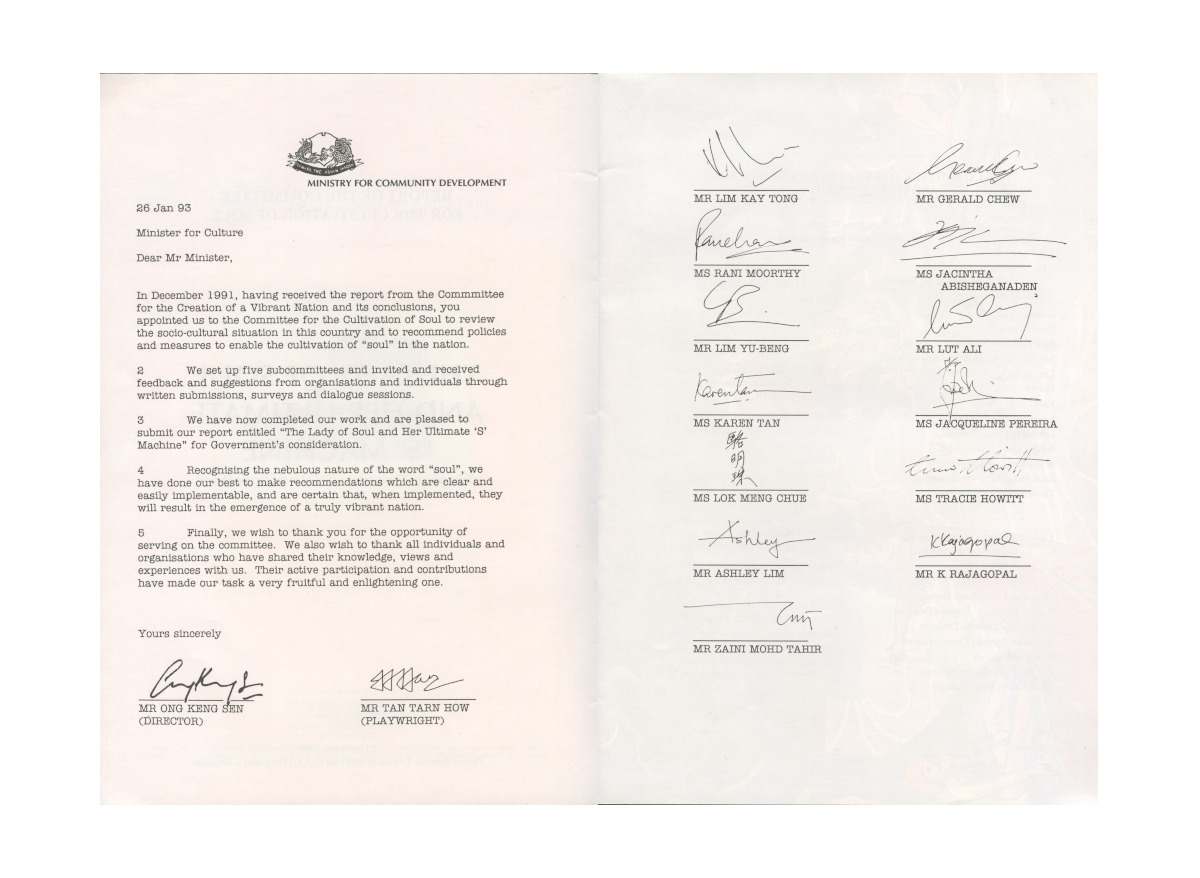 MINISTRY FOR COMMUNITY DEVELOPMENT
26 Jan 93
Minister for Culture
Dear Mr Minister,
In December 1991, having received the report from the Commmittee
for the Creation of a Vibrant Nation and its conclusions, you
appointed us to the Committee for the Cultivation of Soul to review
the socio-cultural situation in this country and to recommend policies
and measures to enable the cultivation of "soul" in the nation.
2 We set up five subcommittees and invited and received
feedback and suggestions from organisations and individuals through
written submissions, surveys and dialogue sessions.
3 We have now completed our work and are pleased to
submit our report entitled "The Lady of Soul and Her Ultimate 'S'
Machine" for Government's consideration.
4 Recognising the nebulous nature of the word "soul", we
have done our best to make recommendations which are clear and
easily implementable, and are certain that, when implemented, they
will result in the emergence of a truly vibrant nation.
5 Finally, we wish to thank you for the opportunity of
serving on the committee. We also wish to thank all individuals and
organisations who have shared their knowledge, views and
experiences with us. Their active participation and contributions
have made our task a very fruitful and enlightening one.
Yours sincerely
MR ONG KENG SEN
(DIRECTOR)
MR TAN TARN HOW
(PLAYWRIGHT)
MR LIM KAY TONG
MR GERALD CHEW
MS RANI MOORTHY
MS JACINTHA
ABISHEGANADEN
MR LIM YU-BENG
MR LUT ALI
Karentan
MS KAREN TAN
MS JACQUELINE PEREIRA
駱
明
珠
MS LOK MENG CHUE
MS TRACIE HOWITT
Ashley
MR ASHLEY LIM
KRajagopal
MR K RAJAGOPAL
MR ZAINI MOHD TAHIR